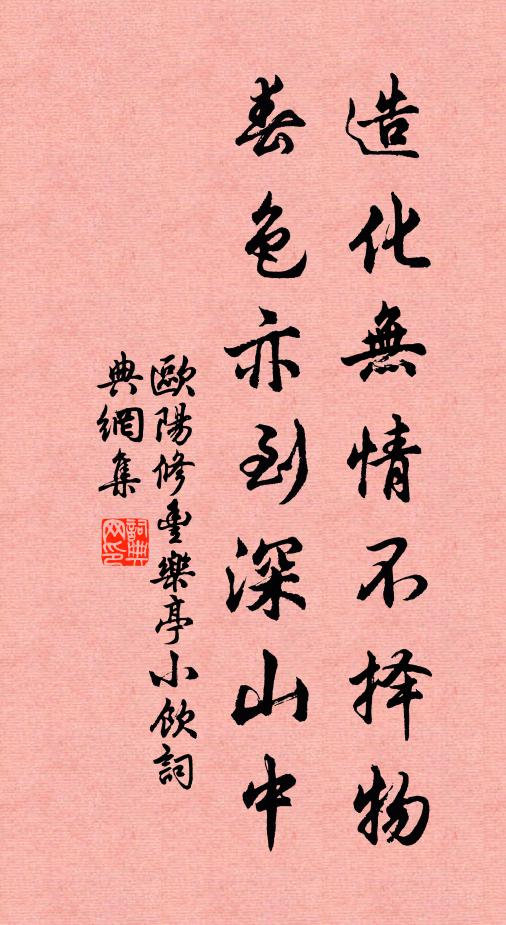 造化無情不择物
春色亦到深山中
歐陽修豊樂亭小飲詞
典網集
詞典
网印